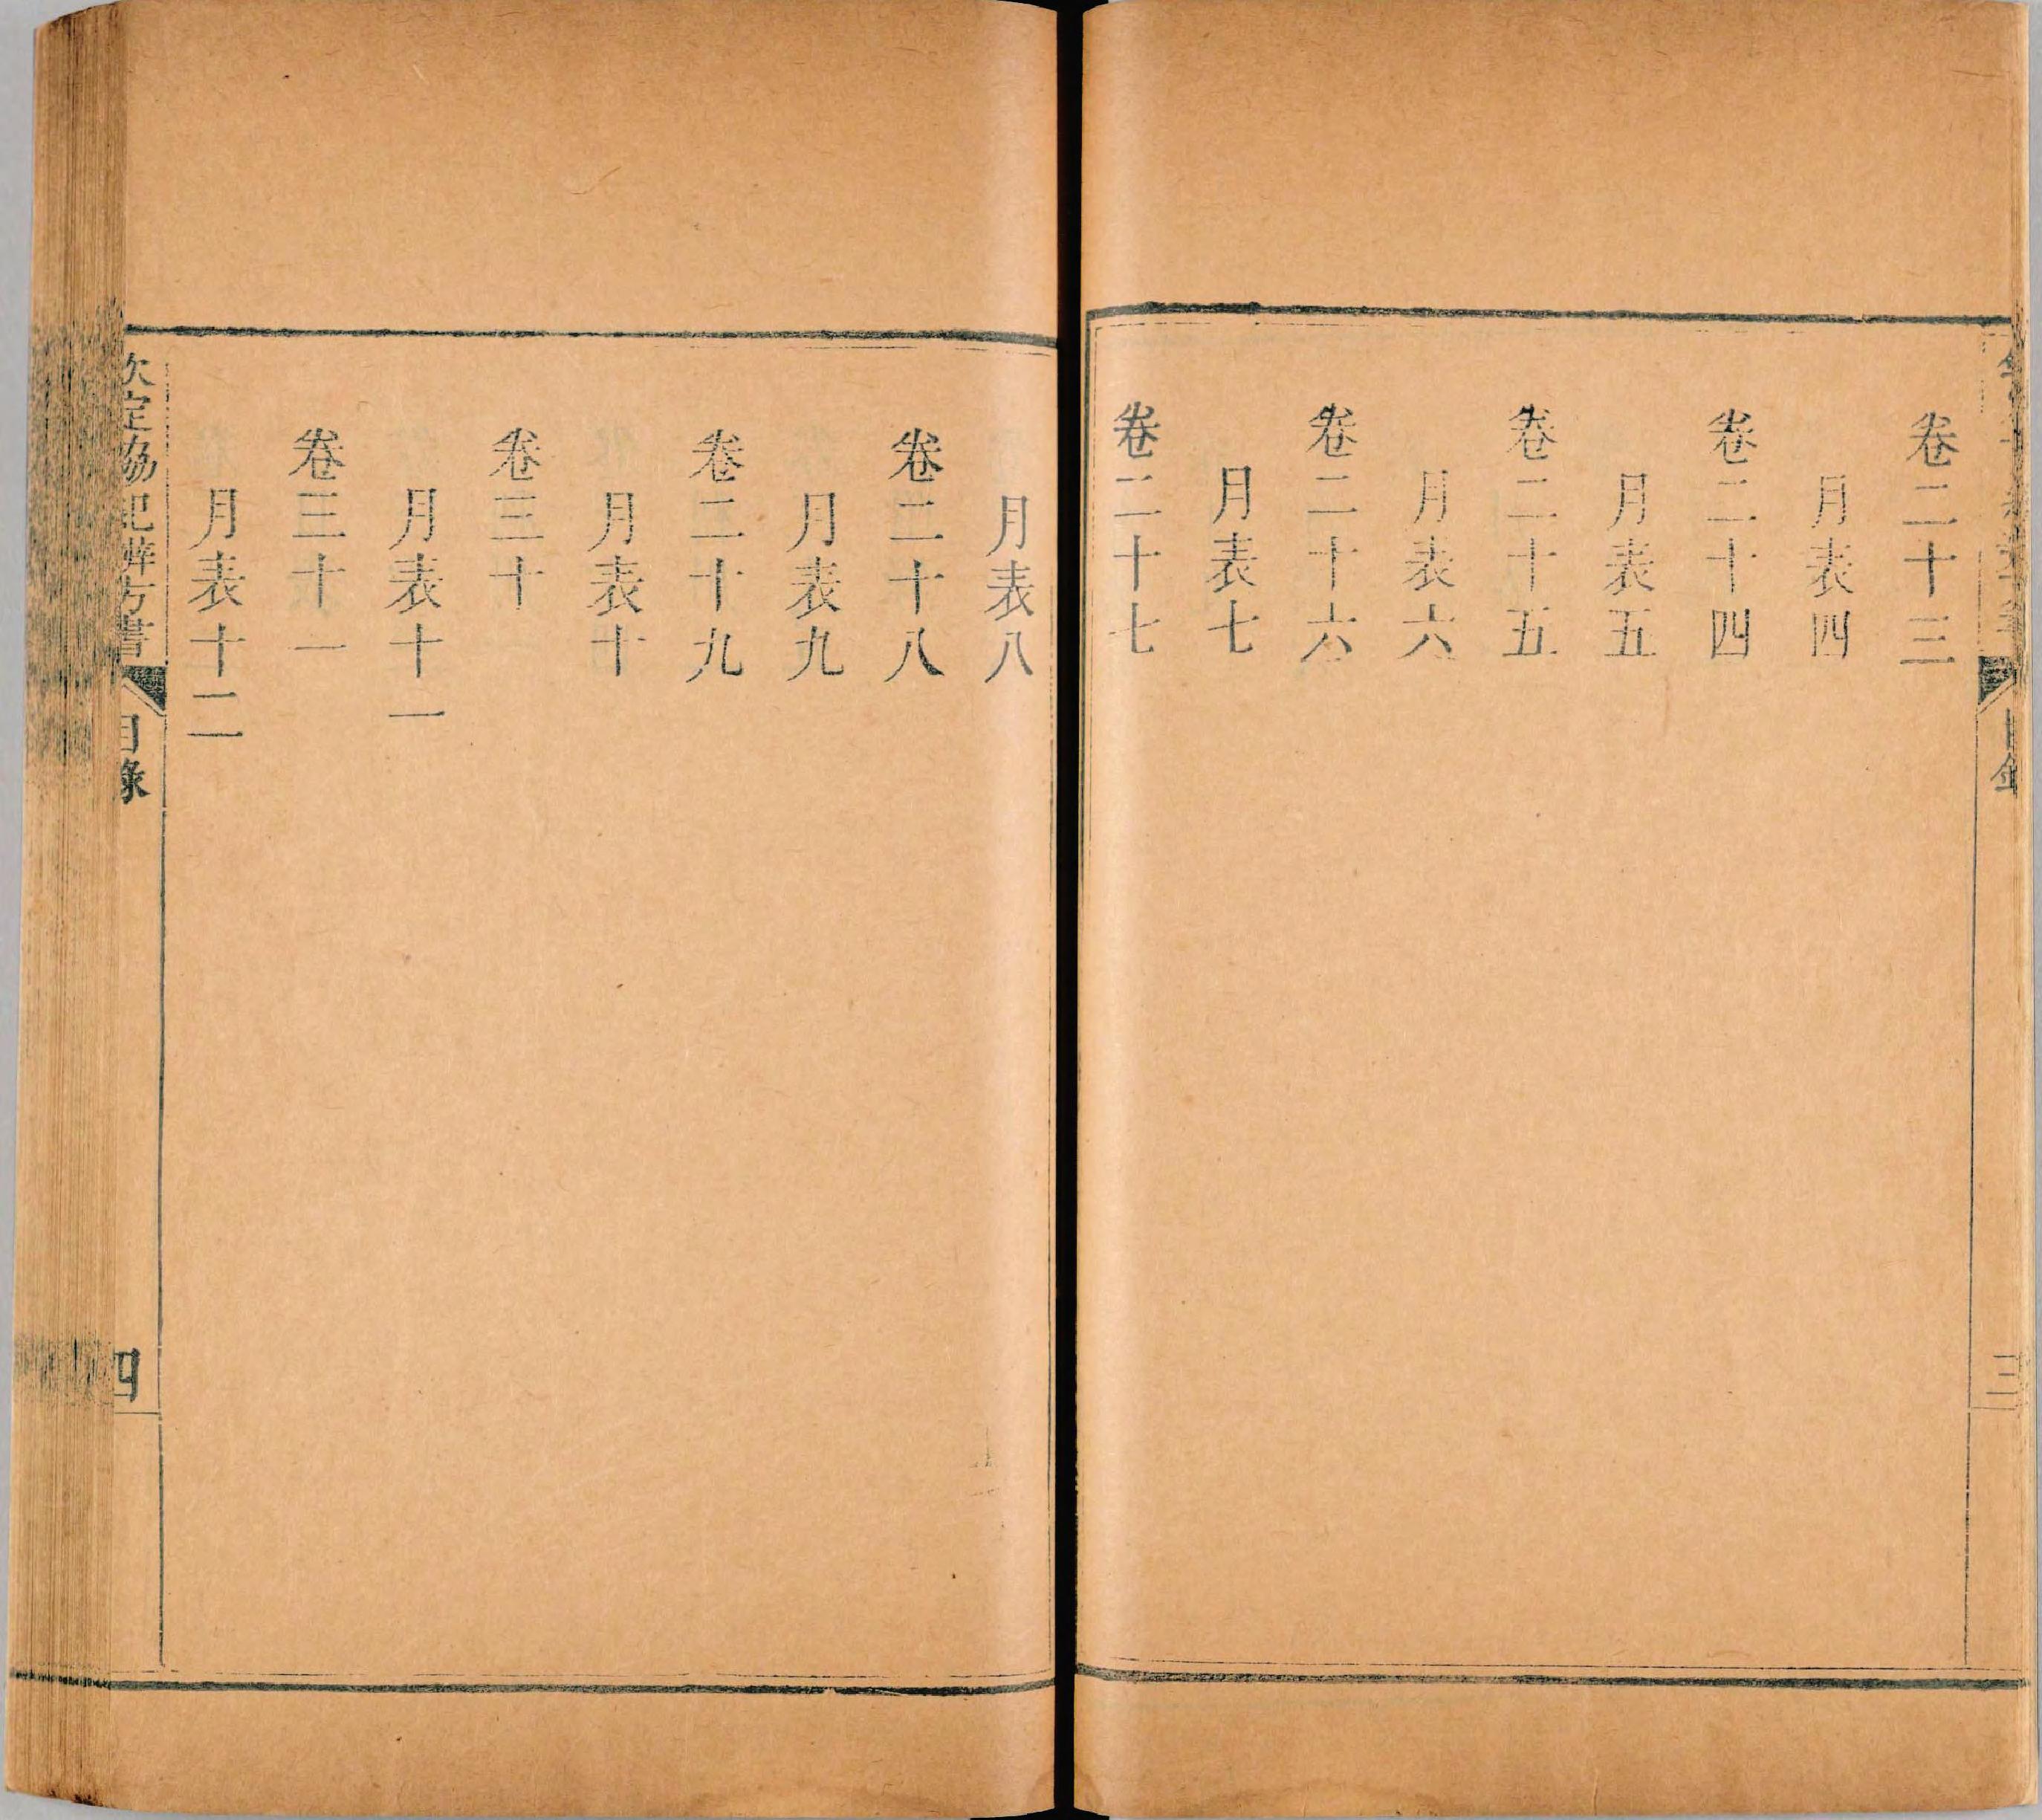 卷二十三
月表四
卷二十四
月表五
卷二十五
月表六
卷二十六
月表七
卷二十七
三
月表八
卷二十八
月表九
卷二十九
月表十
卷三十
月表十一
卷三十一
月表十二
欽定協紀辨方書
目錄
四